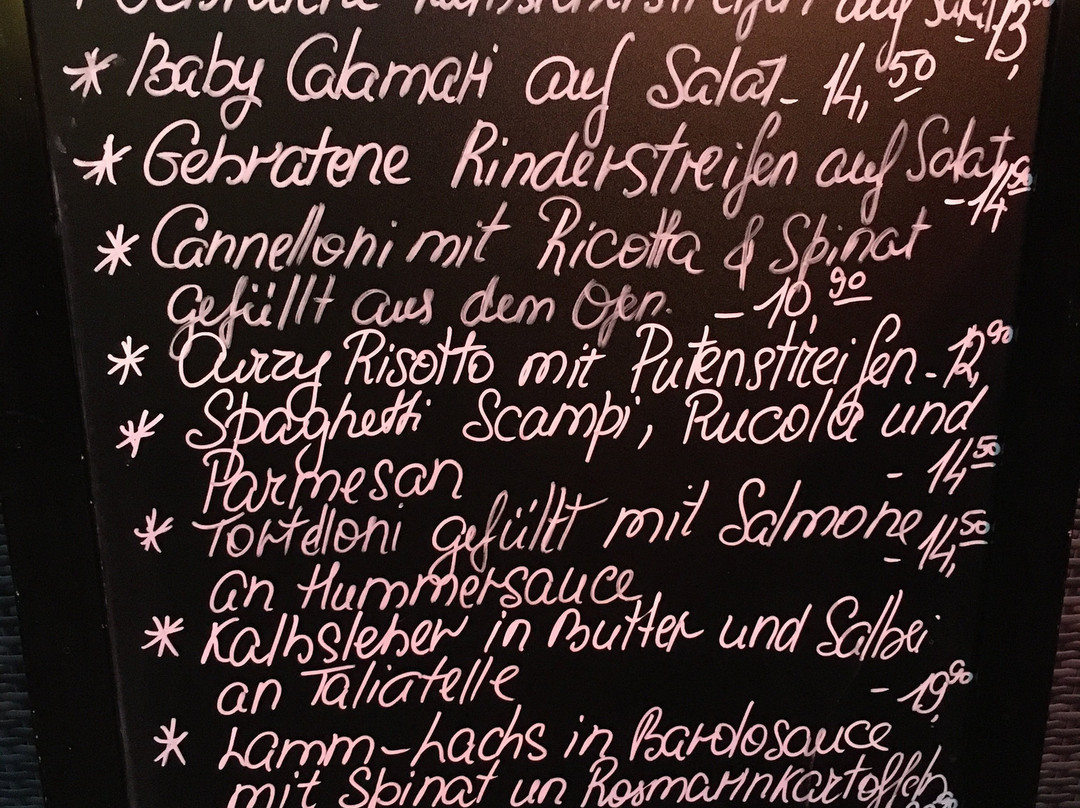 Gebratene Kalbsleberstreifen auf Salat - 13,
* Baby Calamari auf Salat - 14,50
* Gebratene Rinderstreifen auf Salat
- 14,90
* Cannelloni mit Ricotta & Spinat
gefüllt aus dem Ofen. - 10,90
* Curry Risotto mit Putenstreifen - 12,90
* Spaghetti Scampi, Rucola und
Parmesan - 14,50
* Tortelloni gefüllt mit Salmone - 14,50
an Hummersauce
* Kalbsleber in Butter und Salbei
an Taliatelle - 19,90
* Lamm-Lachs in Barolosauce
mit Spinat un Rosmarinkartoffeln